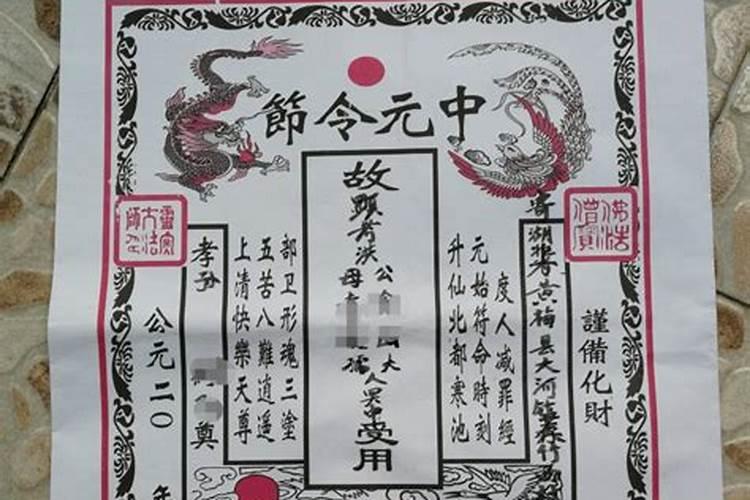 中元令節
佛法僧寶
謹備化財
寄湖北黄梅县大河镇
度人减罪經
元始符命時刻
升仙北都寒池
故顯考洪公 大人
母 孺
受用
部卫形魂三塗
五苦八難逍遥
上清快樂天尊
孝孙 奠
公元二〇 年